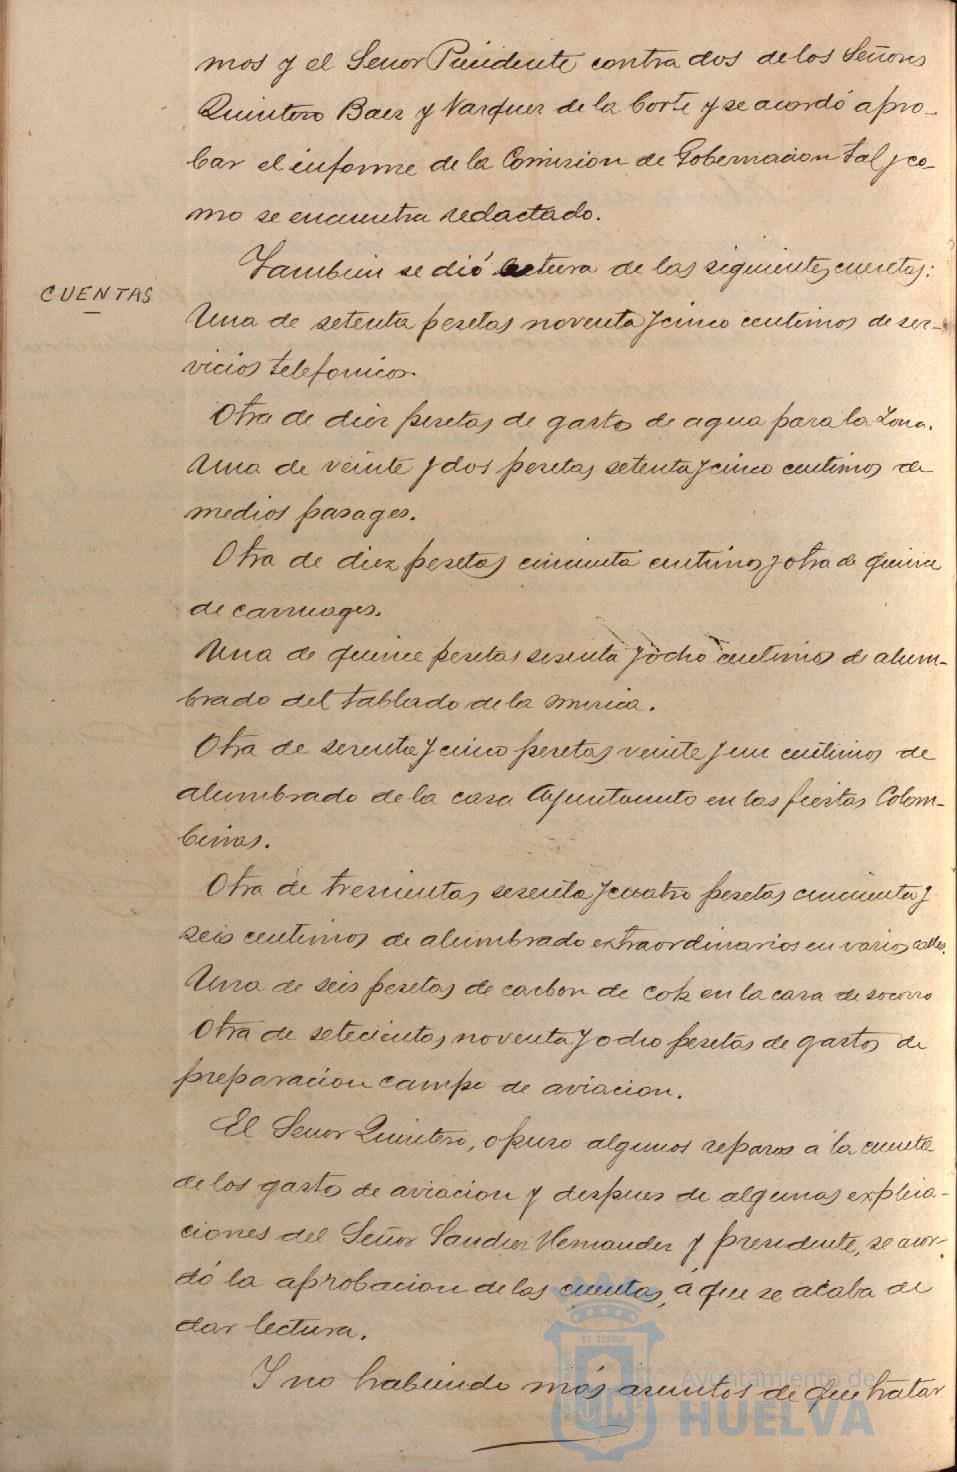 mos y el Señor Presidente contra dos de los Señores
Quintero Baez y Vazquez de la Corte y se acordó apro-
bar el informe de la Comision de Gobernacion tal y co-
mo se encuentra redactado.
Tambien se dió lectura de las siguientes cuentas:
CUENTAS
Una de setenta pesetas noventa y cinco centimos de ser-
vicios telefonicos.
Otra de diez pesetas de gasto de agua para la Zona.
Una de veinte y dos pesetas setenta y cinco centimos de
medios pasages.
Otra de diez pesetas cincuenta centimos y otra de quince
de carruages.
Una de quince pesetas sesenta y ocho centimos de alum-
brado del tablado de la musica.
Otra de sesenta y cinco pesetas veinte y un centimos de
alumbrado de la casa Ayuntamiento en las fiestas Colom-
binas.
Otra de trescientas sesenta y cuatro pesetas cincuenta y
seis centimos de alumbrado extraordinarios en varios calles.
Una de seis pesetas de carbon de cok en la casa de socorro
Otra de setecientas noventa y ocho pesetas de gastos de
preparacion campo de aviacion.
El Señor Quintero, opuso algunos reparos á la cuenta
de los gastos de aviacion y despues de algunas explica-
ciones del Señor Sanchez Hernandez y presidente, se acor-
dó la aprobacion de las cuentas, á que se acaba de
dar lectura.
Y no habiendo más asuntos de que tratar
Ayuntamiento de
HUELVA